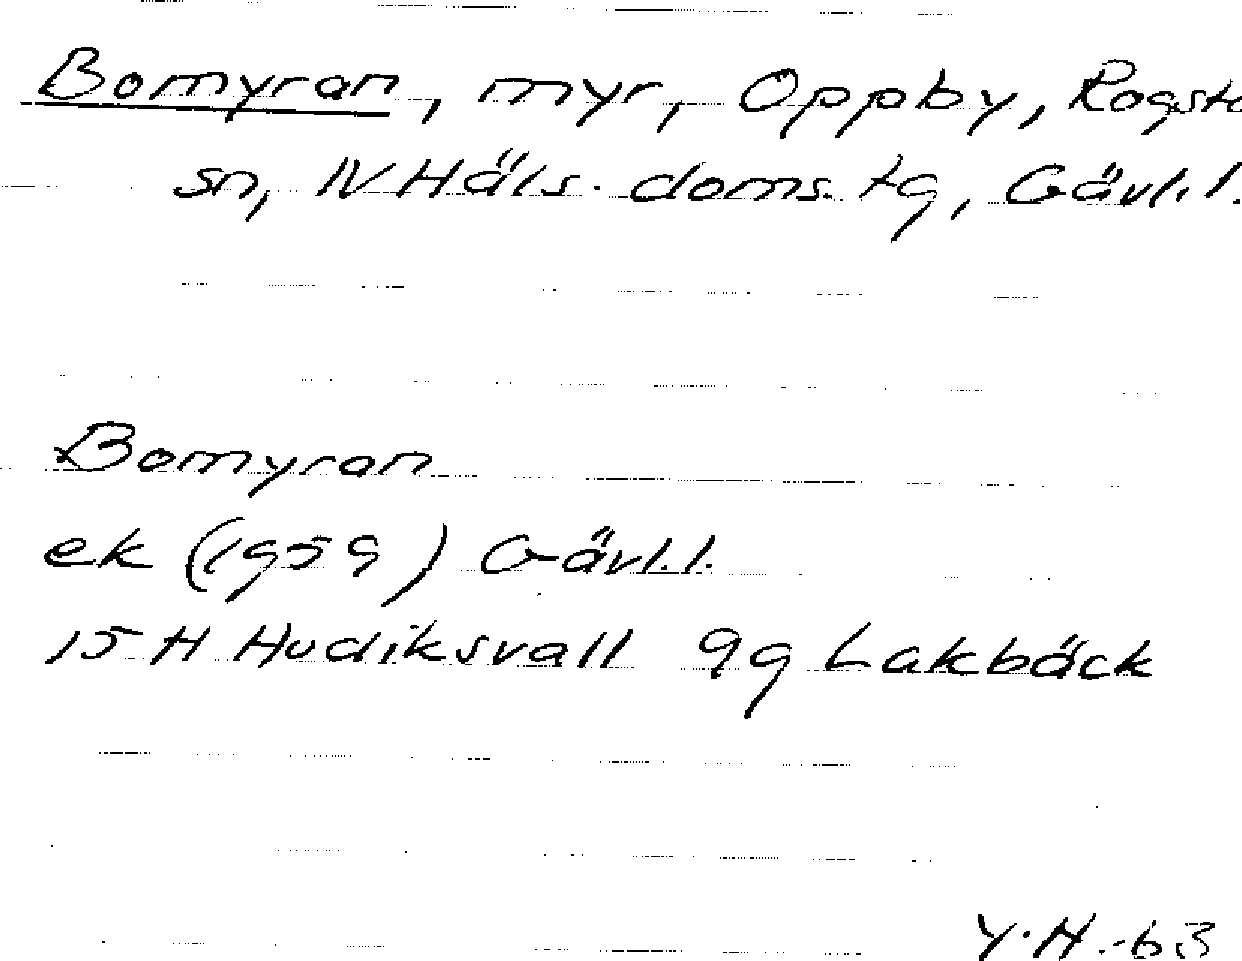 Bomyran, myr, Oppby, Rogsta
sn, N Häls. doms. tg, Gävl.l.
Bomyran
ek (1959) Gävl.l.
15 H Hudiksvall 9g Lakbäck
Y.H.-63